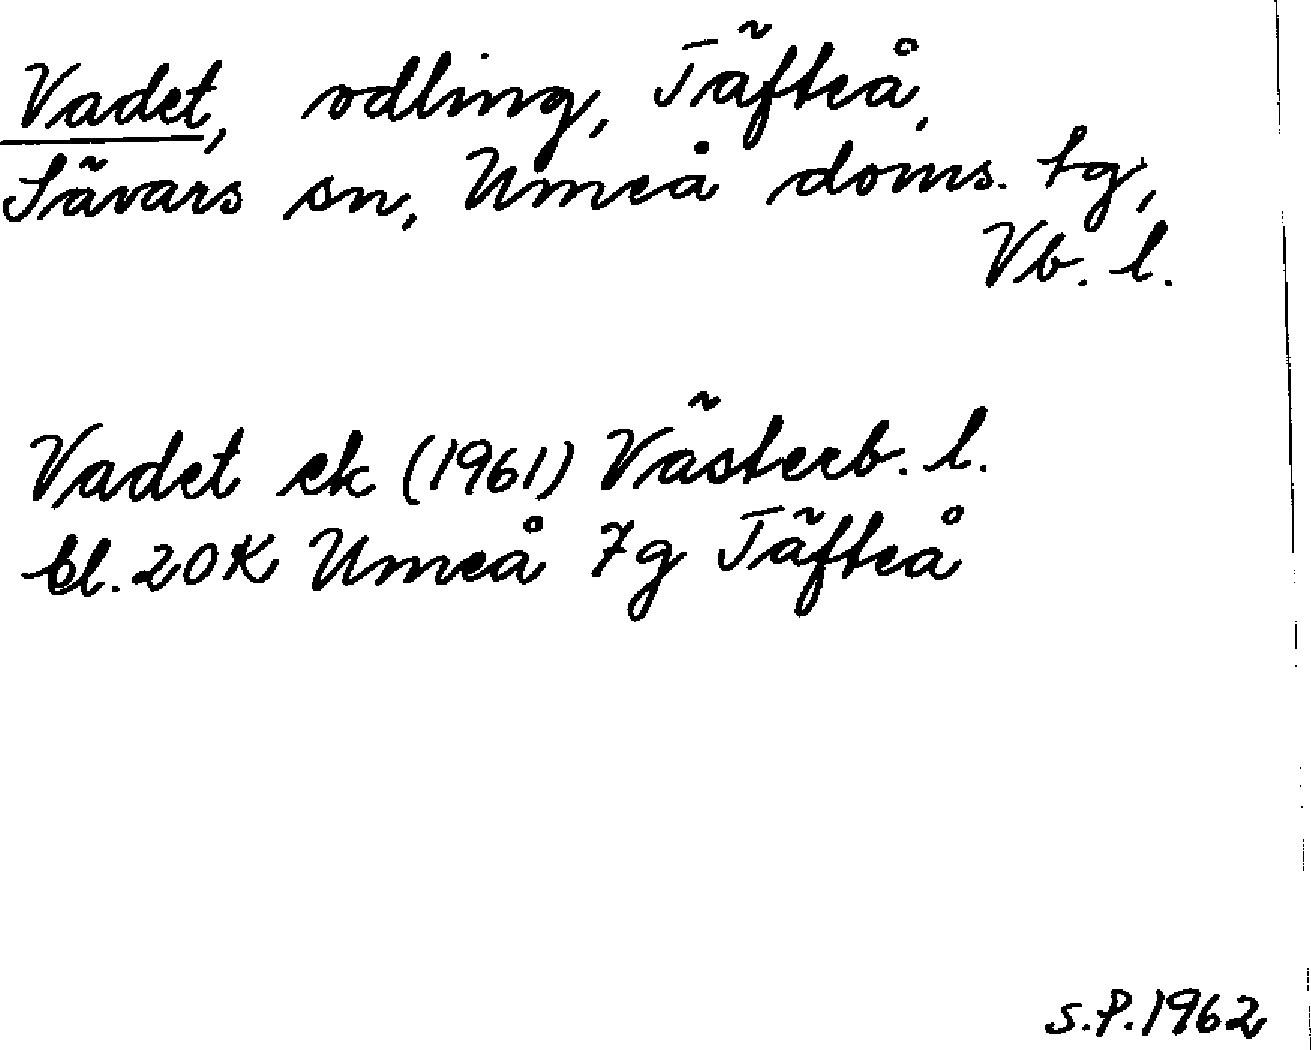 Vadet, odling, Täfteå,
Sävars sn, Umeå doms. tg,
Vb. l.
Vadet ek (1961) Västerb. l.
bl. 20K Umeå 7g Täfteå
S.P. 1962